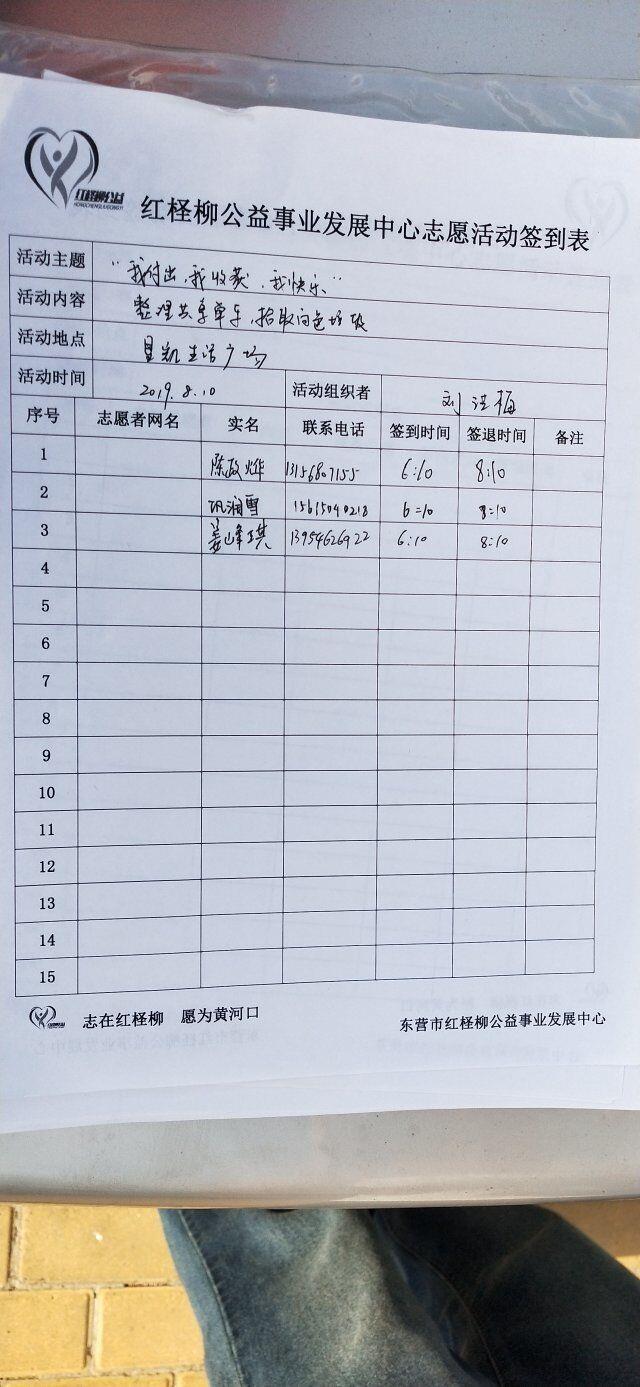 红柽柳公益
HONGCHENGLIUGONGYI
红柽柳公益事业发展中心志愿活动签到表
活动主题 “我付出,我收获,我快乐”
活动内容 整理共享单车,拾取白色垃圾
活动地点 生活广场
活动时间 2019.8.10 活动组织者 刘洪梅
序号 志愿者网名 实名 联系电话 签到时间 签退时间 备注
1 陈政烨 13156807155 6:10 8:10
2 巩润雪 15615040218 6:10 8:10
3 姜峰琪 13954626922 6:10 8:10
4
5
6
7
8
9
10
11
12
13
14
15
志在红柽柳 愿为黄河口 东营市红柽柳公益事业发展中心